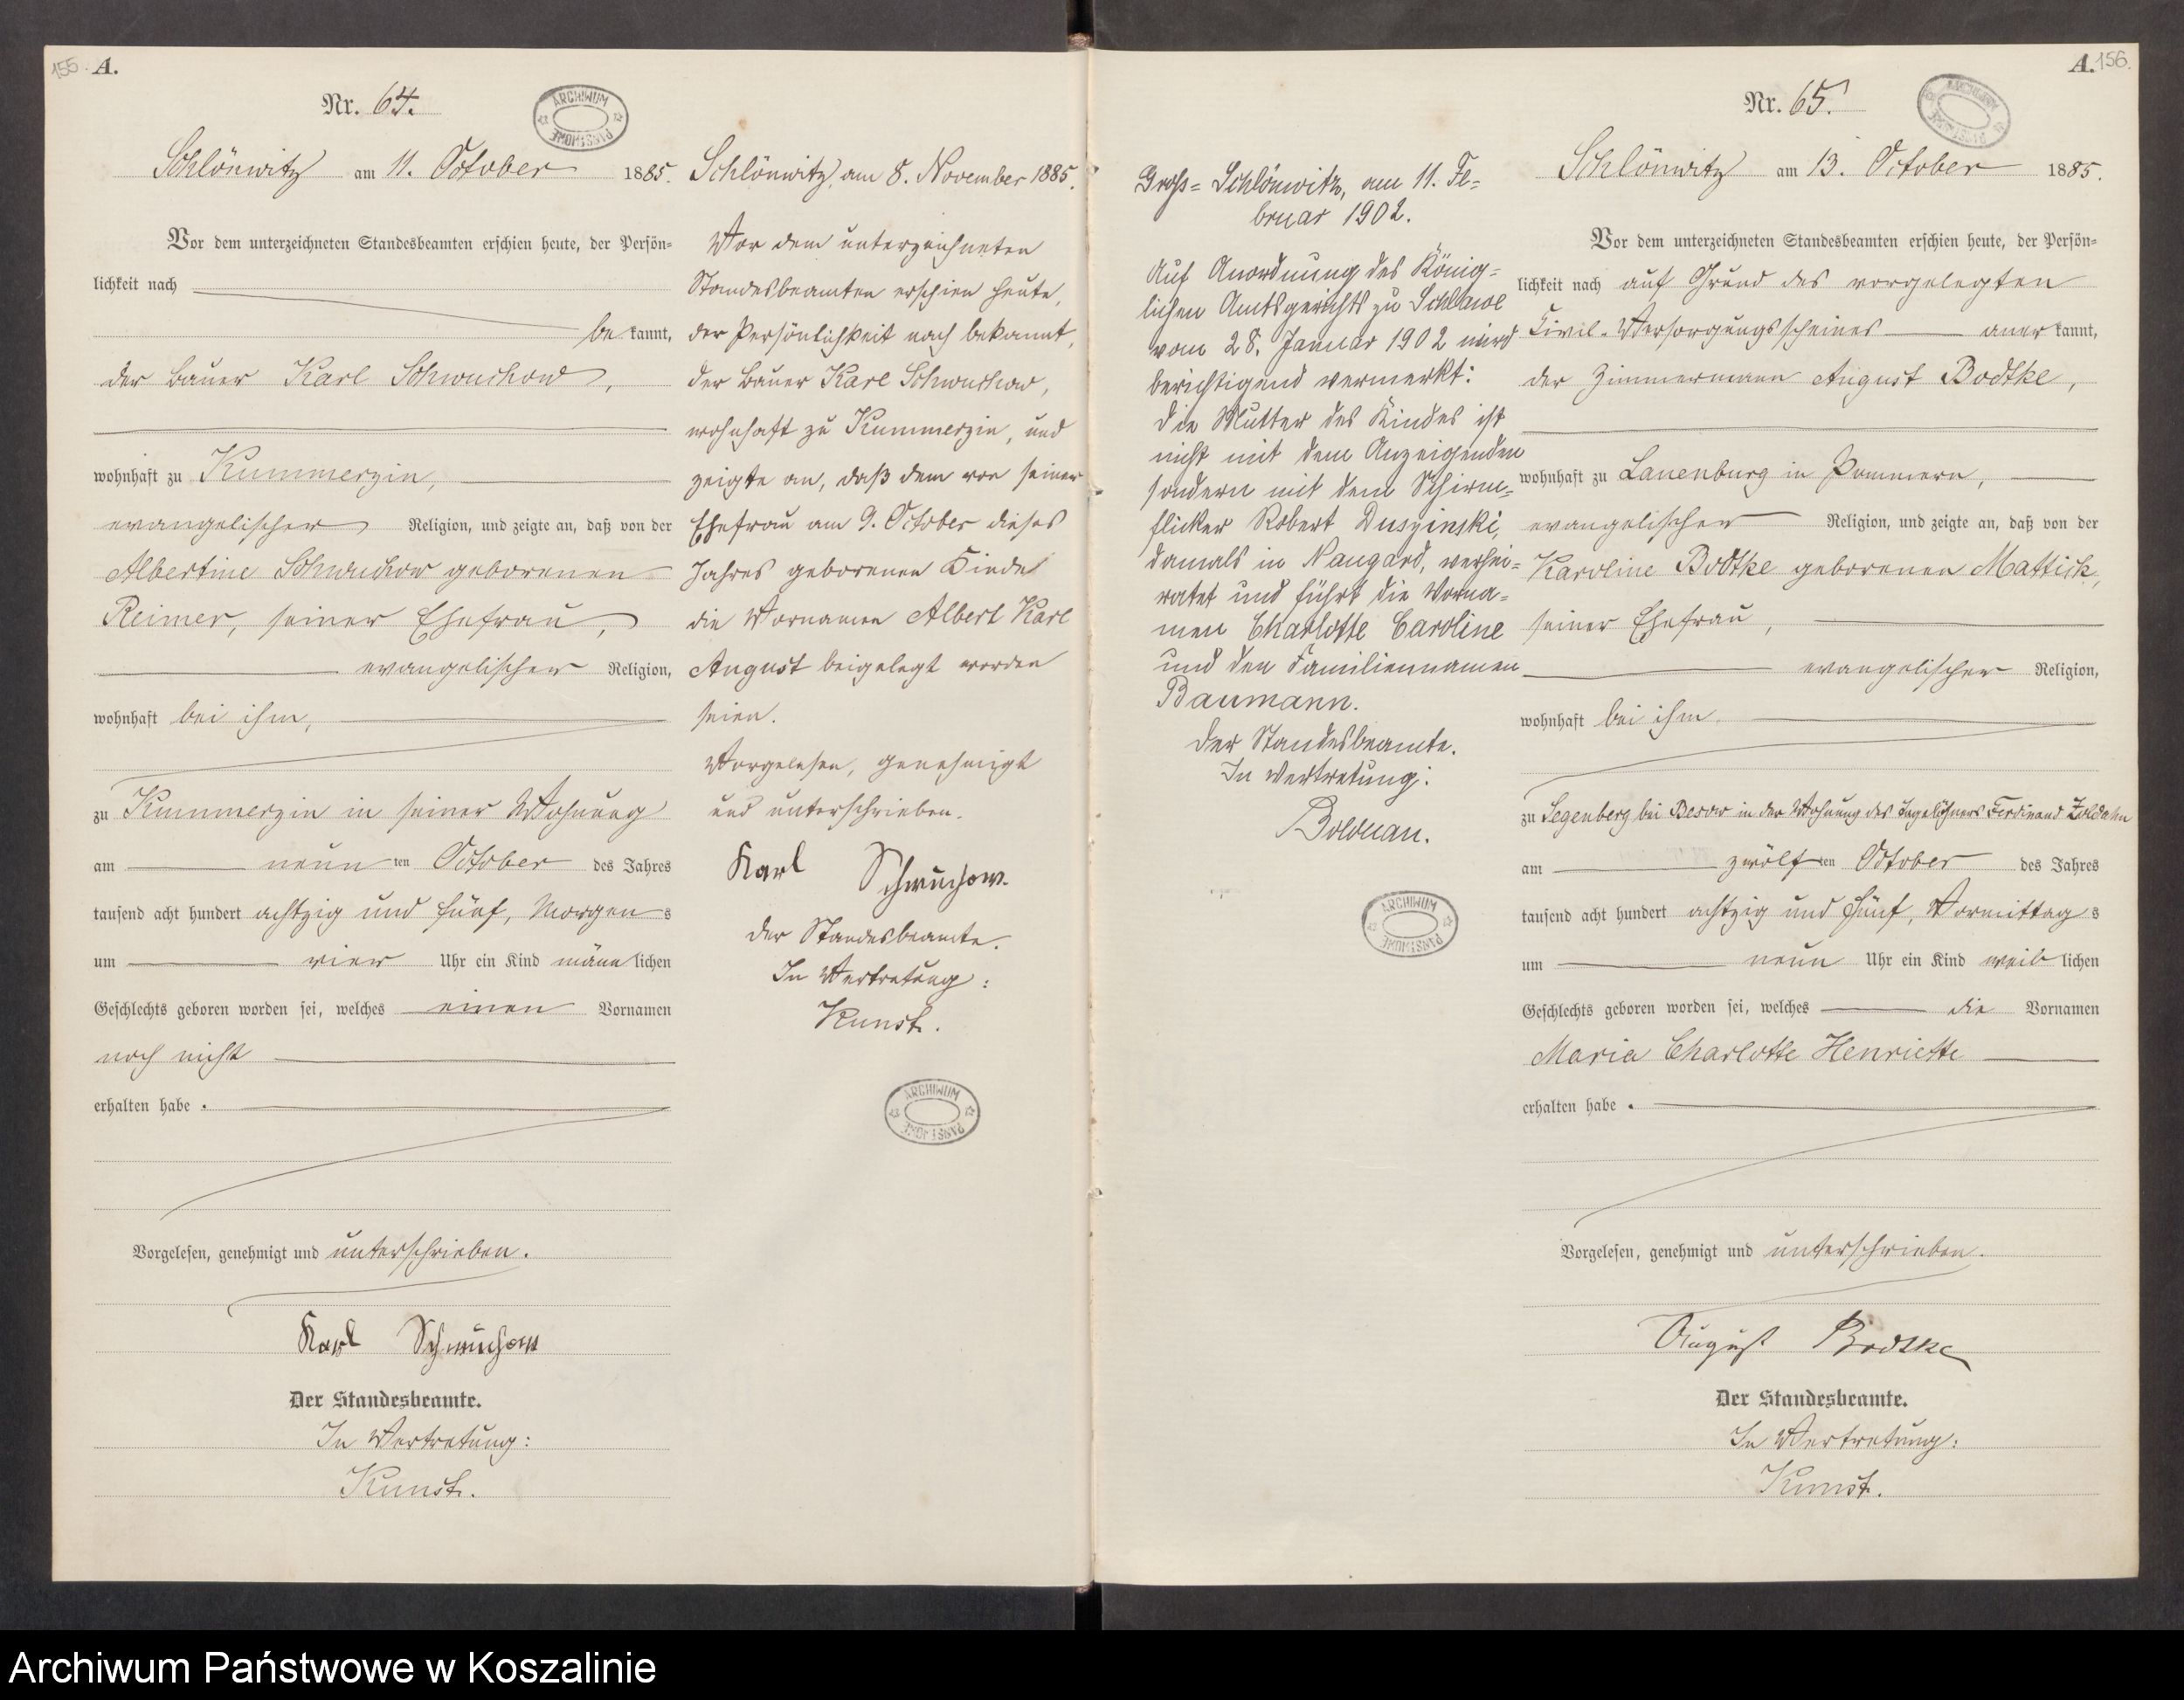 155. A.
Nr. 64.
ARCHIWUM PAŃSTWOWE
Schlönwitz am 11. October 1885.
Vor dem unterzeichneten Standesbeamten erschien heute, der Persön=
lichkeit nach
be kannt,
der Bauer Karl Schwuchow,
wohnhaft zu Kummerzin,
evangelischer Religion, und zeigte an, daß von der
Albertine Schwuchow geborenen
Reimer, seiner Ehefrau,
evangelischer Religion,
wohnhaft bei ihm,
zu Kummerzin in seiner Wohnung
am neun ten October des Jahres
tausend acht hundert achtzig und fünf, Morgen s
um vier Uhr ein Kind männ lichen
Geschlechts geboren worden sei, welches einen Vornamen
noch nicht
erhalten habe.
Vorgelesen, genehmigt und unterschrieben.
Karl Schwuchow
Der Standesbeamte.
In Vertretung:
Kunst.
Schlönwitz, am 8. November 1885.
Vor dem unterzeichneten
Standesbeamten erschien heute,
der Persönlichkeit nach bekannt,
der Bauer Karl Schwuchow,
wohnhaft zu Kummerzin, und
zeigte an, daß dem von seiner
Ehefrau am 9. October dieses
Jahres geborenen Kinde
die Vornamen Albert Karl
August beigelegt worden
seien.
Vorgelesen, genehmigt
und unterschrieben.
Karl Schwuchow.
Der Standesbeamte.
In Vertretung:
Kunst.
ARCHIWUM PAŃSTWOWE
Gross=Schlönwitz, am 11. Fe=
bruar 1902.
Auf Anordnung des König=
lichen Amtsgerichts zu Schlawe
vom 28. Januar 1902 wird
berichtigend vermerkt:
Die Mutter des Kindes ist
nicht mit dem Anzeigenden
sondern mit dem Schirm=
flicker Robert Duszinski,
damals in Naugard, verhei=
ratet und führt die Vorna=
men Charlotte Caroline
und den Familiennamen
Baumann.
Der Standesbeamte.
In Vertretung:
Bolduan.
ARCHIWUM PAŃSTWOWE
A. 156.
Nr. 65.
ARCHIWUM PAŃSTWOWE
Schlönwitz am 13. October 1885.
Vor dem unterzeichneten Standesbeamten erschien heute, der Persön=
lichkeit nach auf Grund des vorgelegten
Civil-Versorgungsscheines aner kannt,
der Zimmermann August Bodtke,
wohnhaft zu Lauenburg in Pommern,
evangelischer Religion, und zeigte an, daß von der
Karoline Bodtke geborenen Mattick,
seiner Ehefrau,
evangelischer Religion,
wohnhaft bei ihm
zu Segenberg bei Besow in der Wohnung des Tagelöhners Ferdinand Zoldahn
am zwölf ten October des Jahres
tausend acht hundert achtzig und fünf, Vormittag s
um neun Uhr ein Kind weib lichen
Geschlechts geboren worden sei, welches die Vornamen
Maria Charlotte Henriette
erhalten habe.
Vorgelesen, genehmigt und unterschrieben.
August Bodtke
Der Standesbeamte.
In Vertretung:
Kunst.
Archiwum Państwowe w Koszalinie